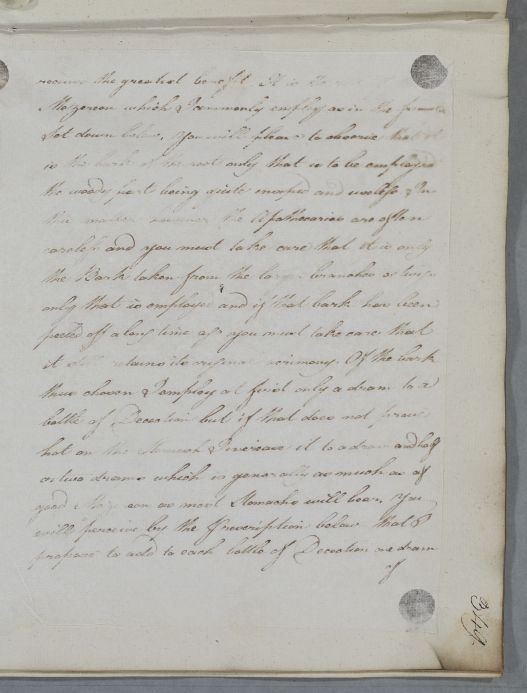 receive the greatest benefit. It is the
Mezereon which I commonly employ as in the formula
Set down below. You will please to observe that it
is the bark of the root only that is to be employed
the woody part being quite insipid and useless. In
this matter however the Apothecaries are often
careless and you must take care that it is only
the Bark taken from the large branches or
only that is employed and if that bark has been
peeled off a long time ago you must take care that
it still retains its original acrimony. Of the bark
thus chosen I employ at first only a dram to a
bottle of Decoction but if that does not prove
hot on the Stomach I increase it to a dram and half
or two drams which is generally as much as of
good Mezereon as most Stomachs will bear. You
will perceive by the Prescription below that I
propose to add to each bottle of Decoction one dram
of
349